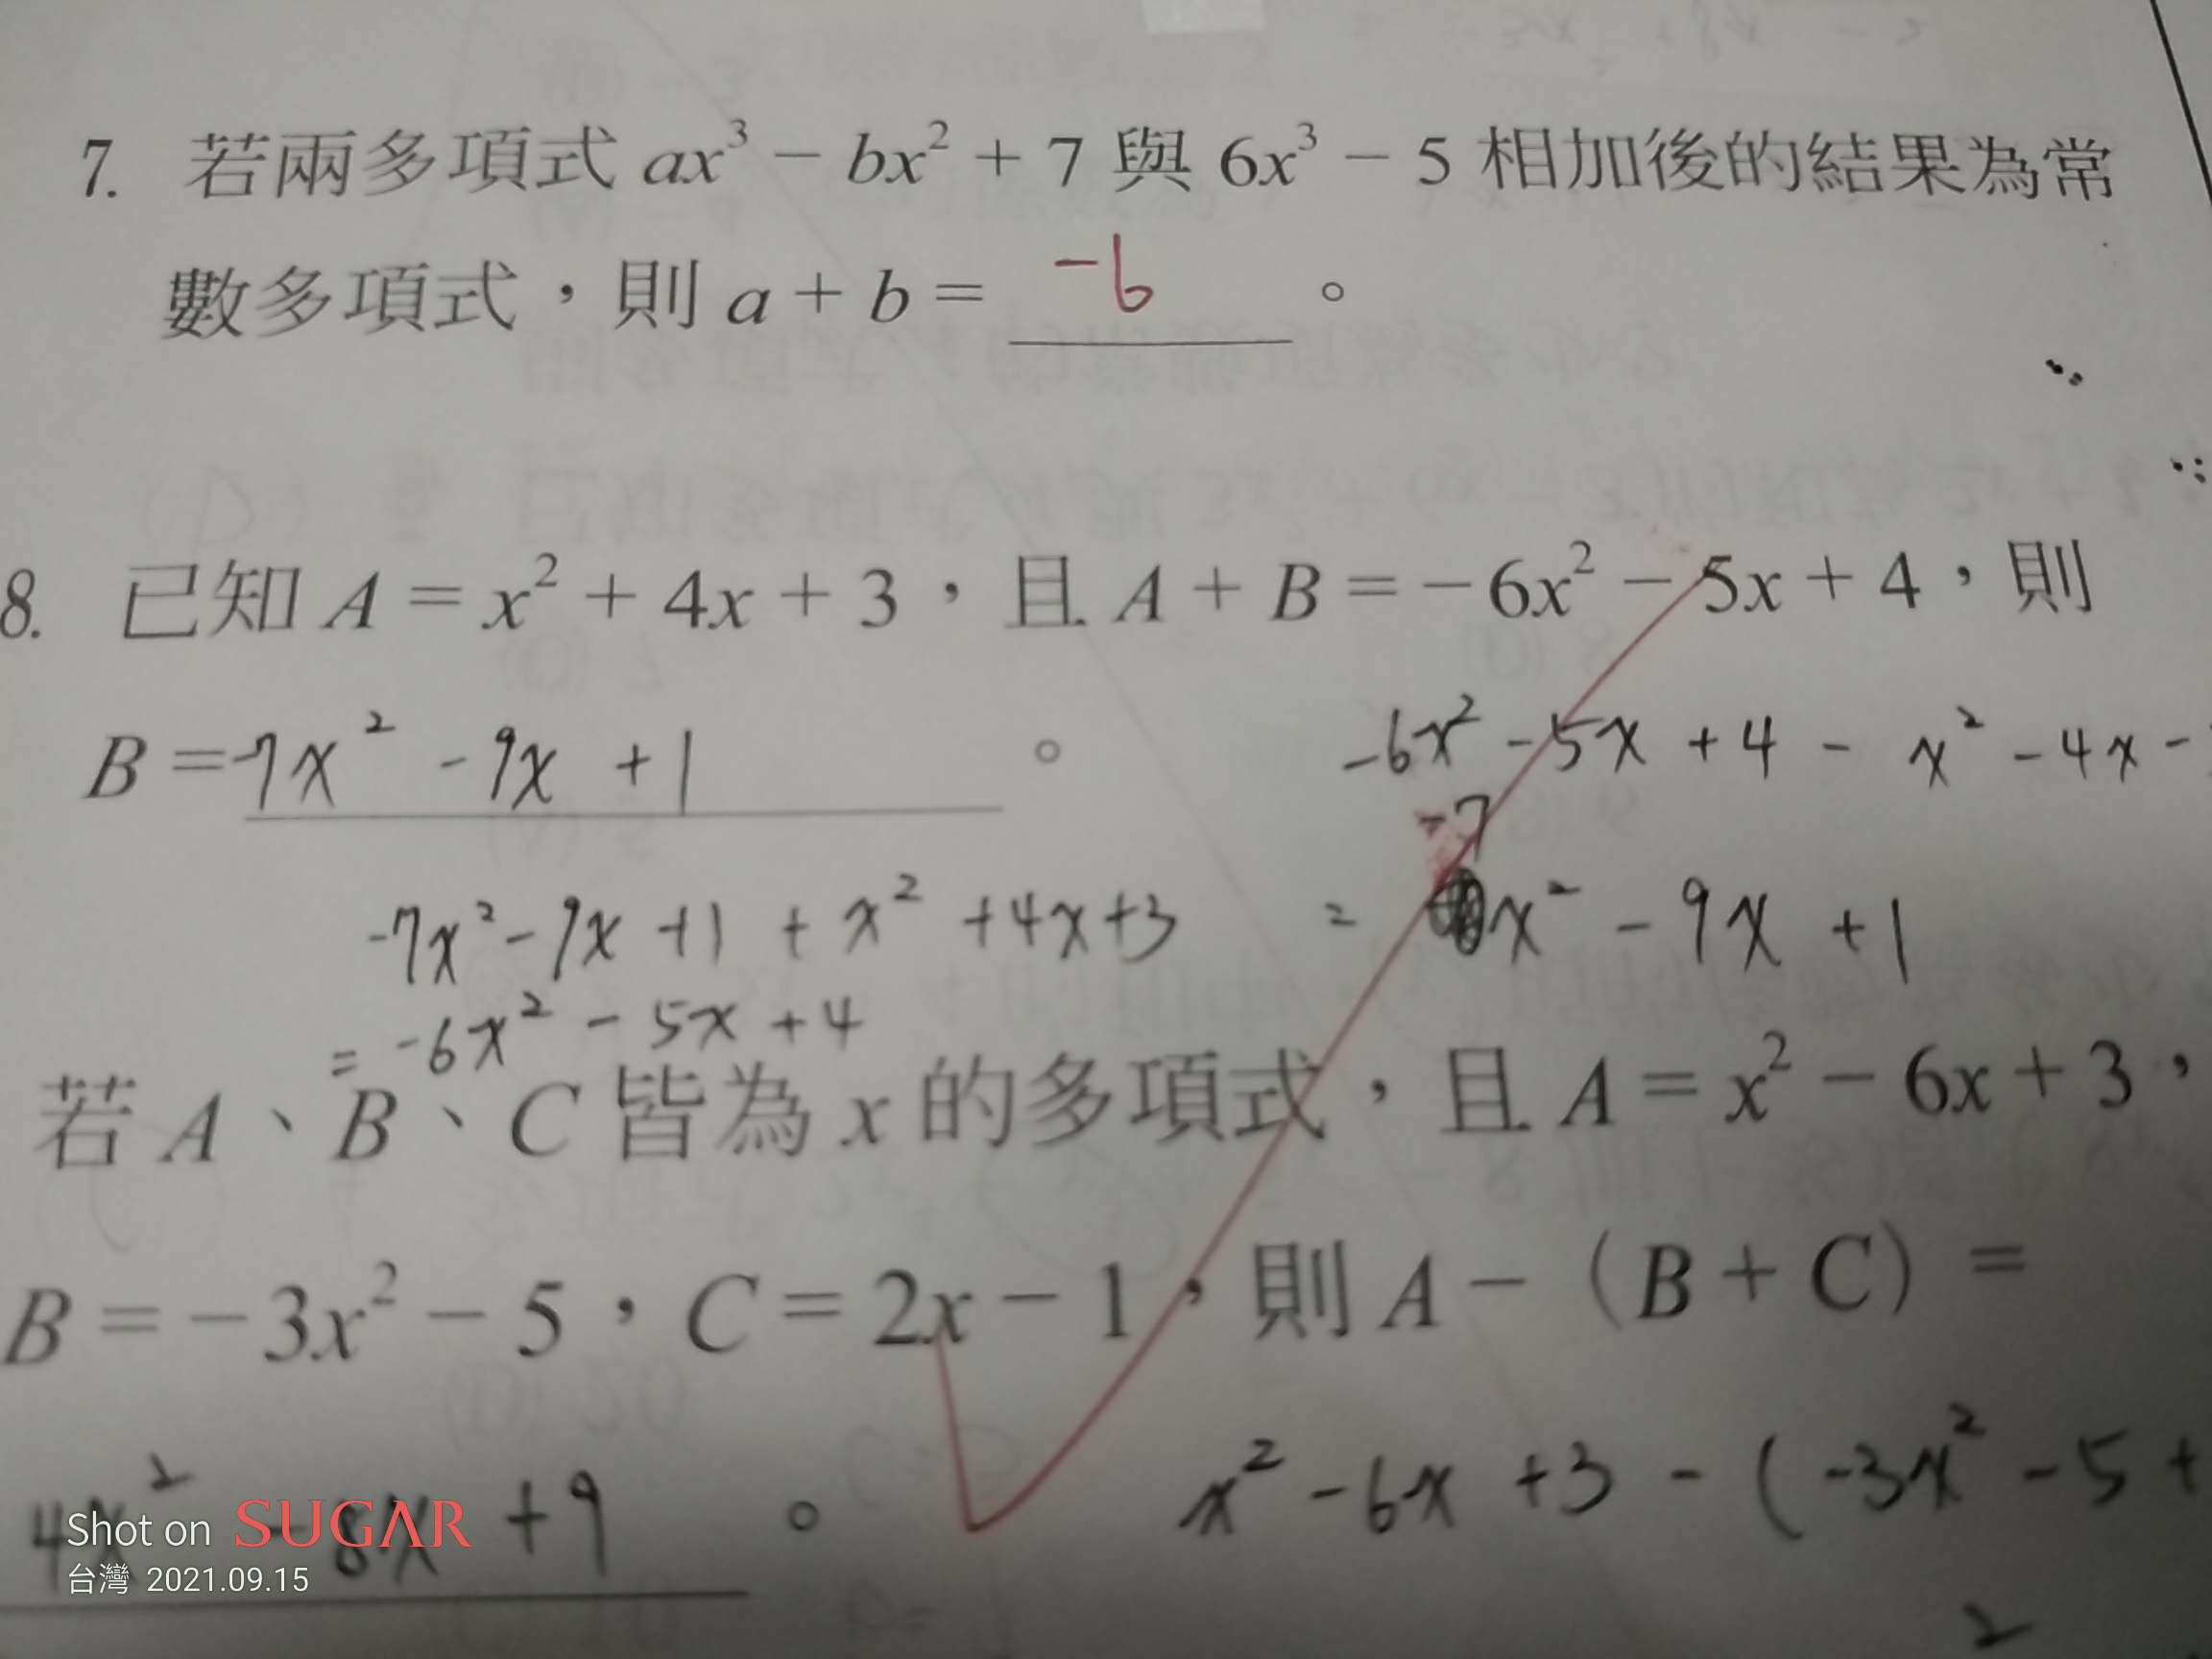 7. 若兩多項式 ax³ − bx² + 7 與 6x³ − 5 相加後的結果為常
數多項式，則 a + b = -6 。
8. 已知 A = x² + 4x + 3，且 A + B = −6x² − 5x + 4，則
B = -7x² - 9x + 1 。
-6x² - 5x + 4 - x² - 4x -
-7
= x² - 9x + 1
-7x² - 9x + 1 + x² + 4x + 3
= -6x² - 5x + 4
若 A、B、C 皆為 x 的多項式，且 A = x² − 6x + 3，
B = −3x² − 5，C = 2x − 1，則 A −（B + C）=
4x² - 8x + 9 。
x² - 6x + 3 - (-3x² - 5 +
2
Shot on SUGAR
台灣 2021.09.15